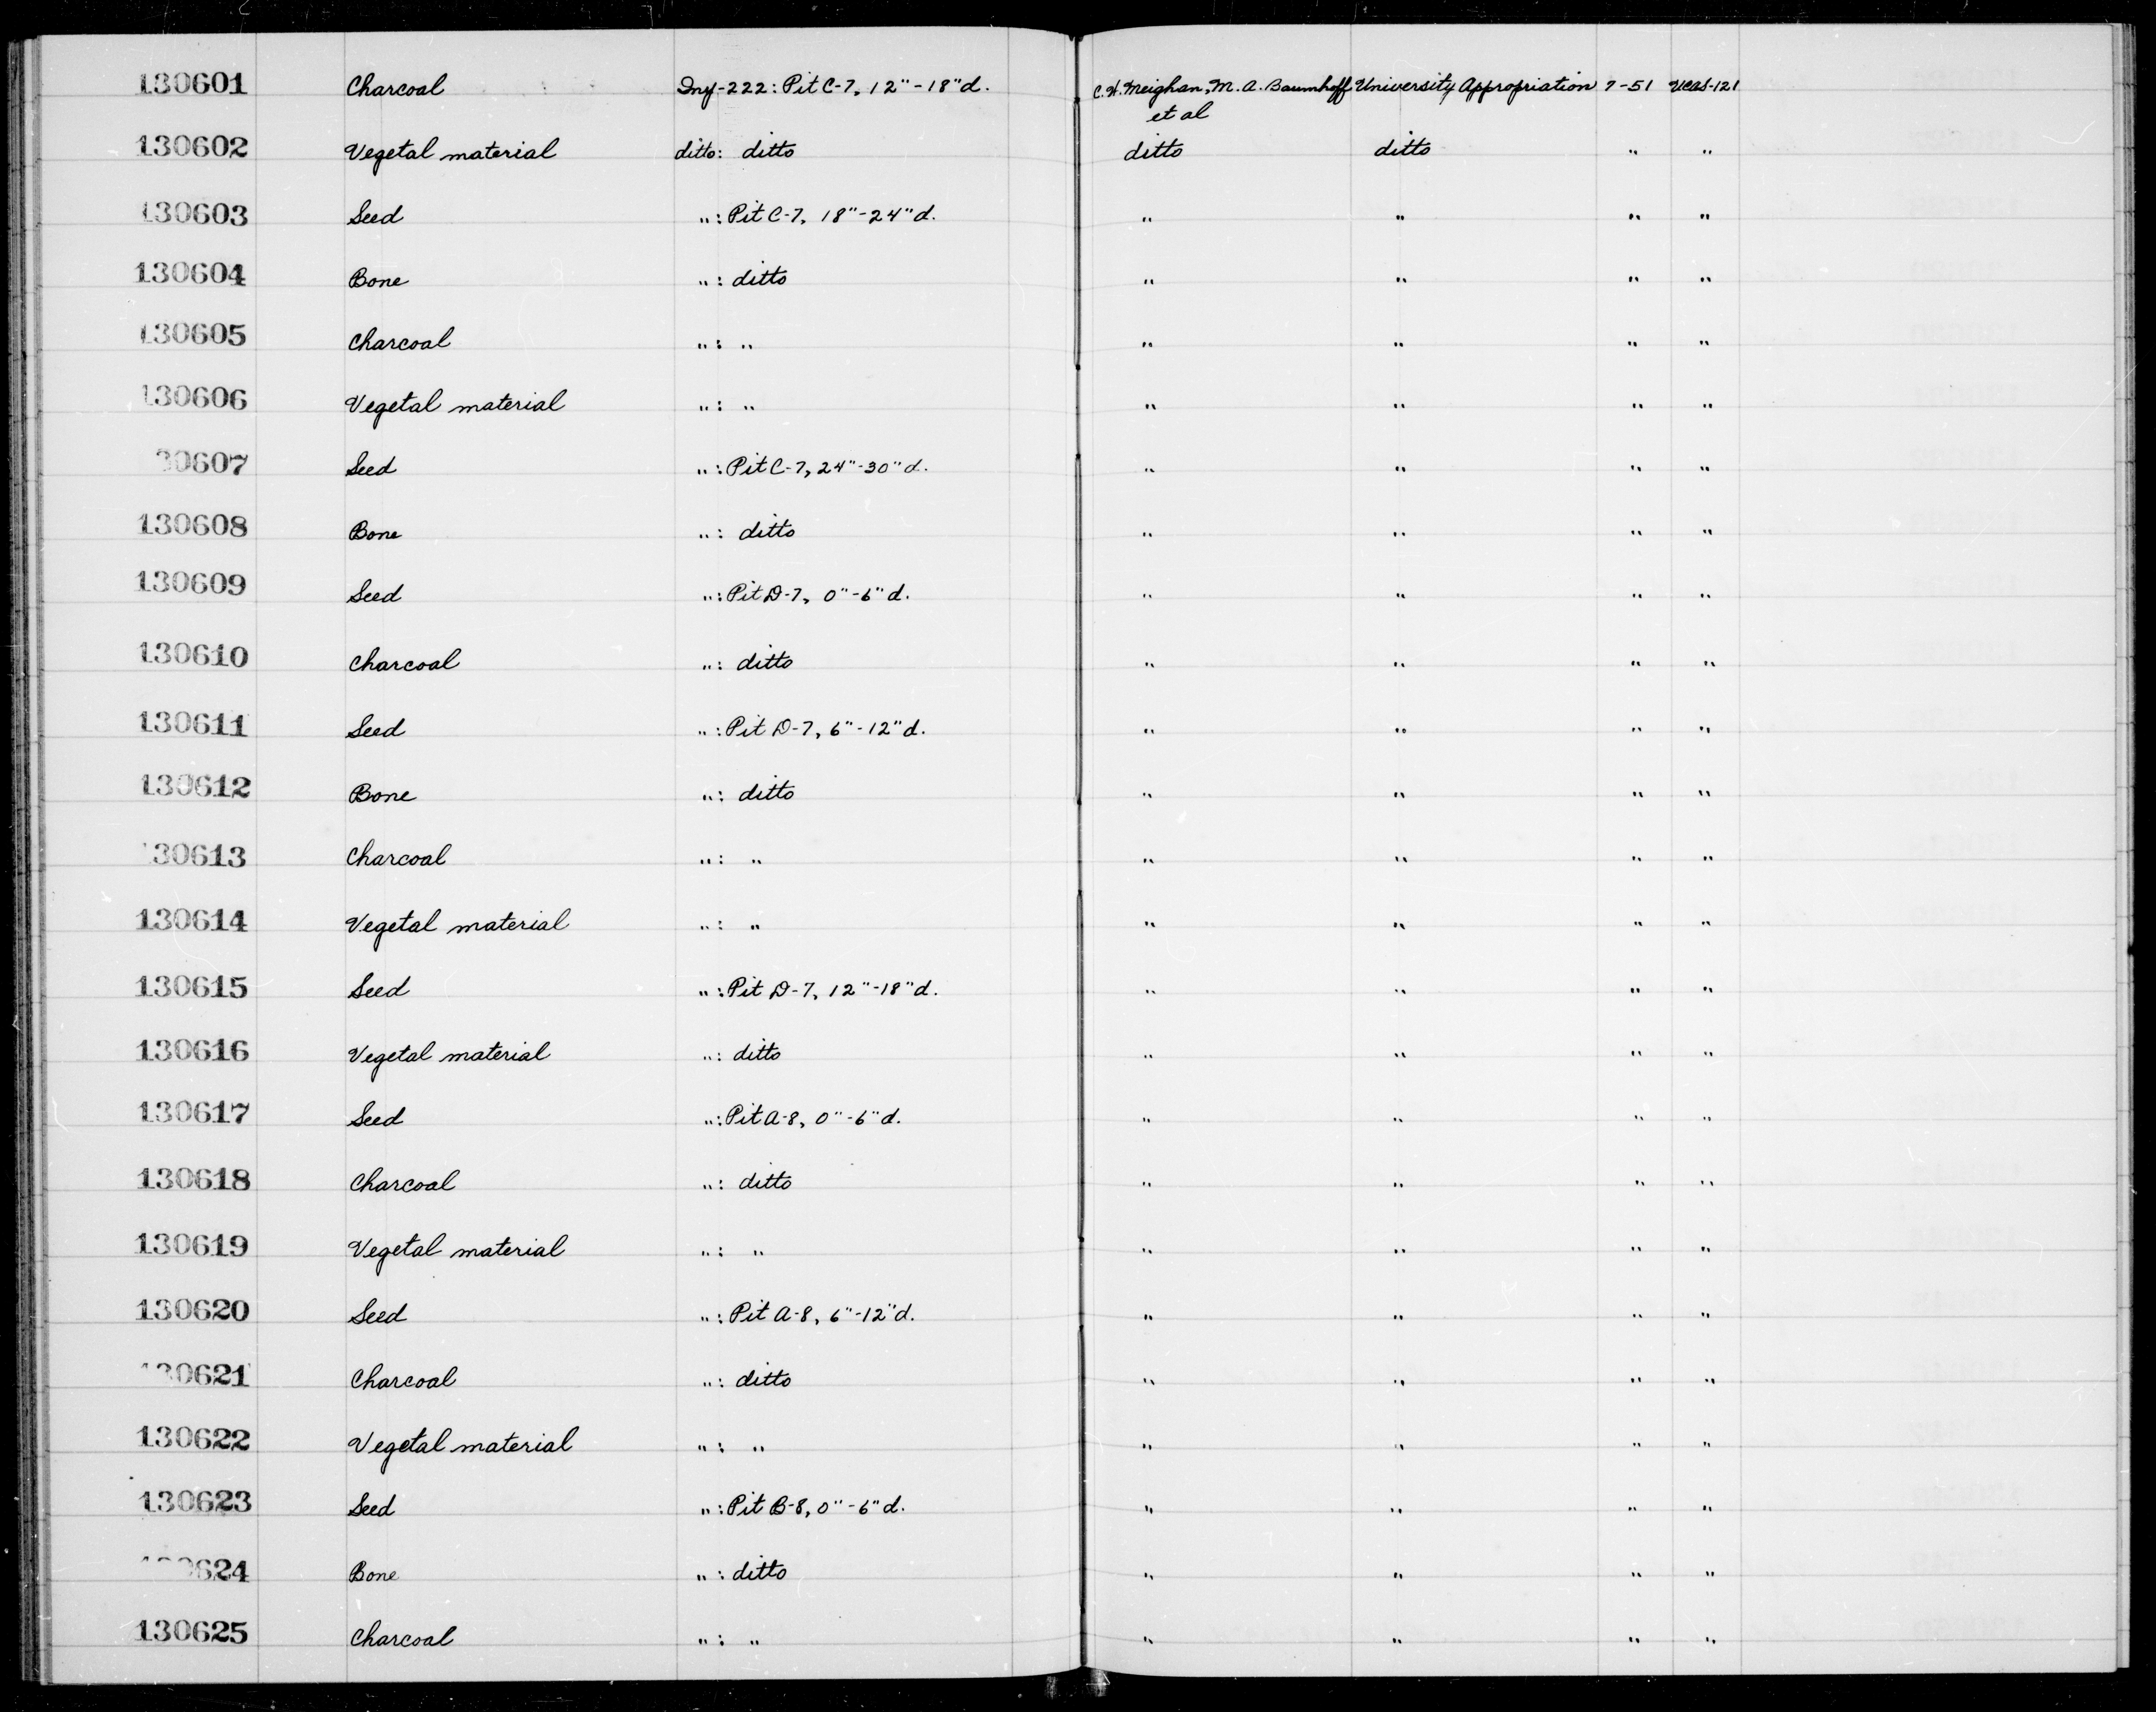 130601 Charcoal Iny-222: Pit C-7, 12"-18"d. C.W. Meighan, M.A. Baumhoff University Appropriation 7-51 UCAS-121
et al
130602 Vegetal material ditto: ditto ditto ditto " "
130603 Seed ": Pit C-7, 18"-24"d. " " " "
130604 Bone ": ditto " " " "
130605 Charcoal ": " " " " "
130606 Vegetal material ": " " " " "
30607 Seed ": Pit C-7, 24"-30"d. " " " "
130608 Bone ": ditto " " " "
130609 Seed ": Pit D-7, 0"-6"d. " " " "
130610 Charcoal ": ditto " " " "
130611 Seed ": Pit D-7, 6"-12"d. " " " "
130612 Bone ": ditto " " " "
130613 Charcoal ": " " " " "
130614 Vegetal material ": " " " " "
130615 Seed ": Pit D-7, 12"-18"d. " " " "
130616 Vegetal material ": ditto " " " "
130617 Seed ": Pit A-8, 0"-6"d. " " " "
130618 Charcoal ": ditto " " " "
130619 Vegetal material ": " " " " "
130620 Seed ": Pit A-8, 6"-12"d. " " " "
130621 Charcoal ": ditto " " " "
130622 Vegetal material ": " " " " "
130623 Seed ": Pit B-8, 0"-6"d. " " " "
130624 Bone ": ditto " " " "
130625 Charcoal ": " " " " "